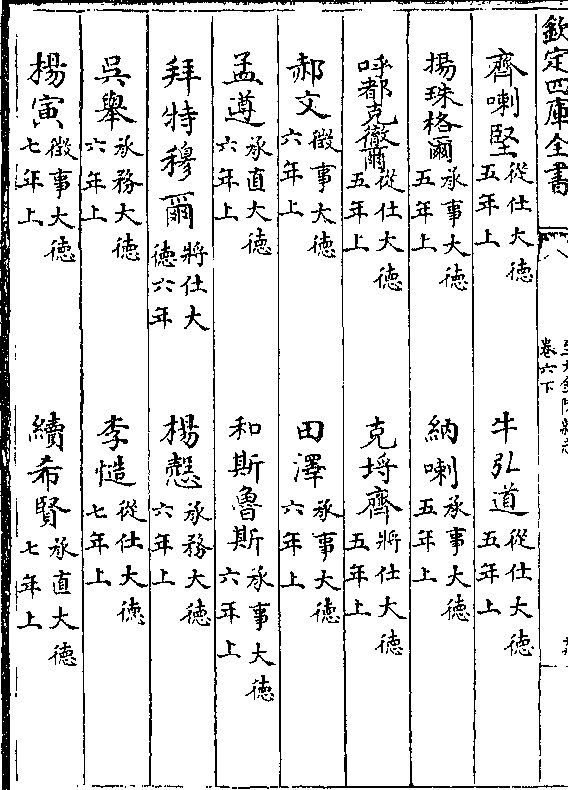 欽定四庫全書
卷六下
齊喇堅從仕大德五年上　牛弘道從仕大德五年上
揚珠格爾承事大德五年上　納喇承事大德五年上
呼都克徹爾從仕大德五年上　克埒齊將仕大德五年上
郝文徵事大德六年上　田澤承事大德六年上
孟遵承直大德六年上　和斯魯斯承事大德六年上
拜特穆爾將仕大德六年　楊慤承務大德六年上
吳舉承務大德六年上　李愷從仕大德七年上
楊寅徵事大德七年上　續希賢承直大德七年上